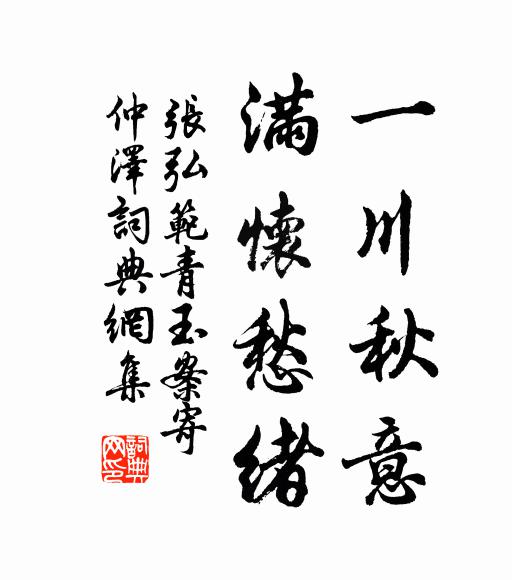 一川秋意
滿懷愁緒
張弘範青玉案寄
仲澤詞典網集
詞典網印